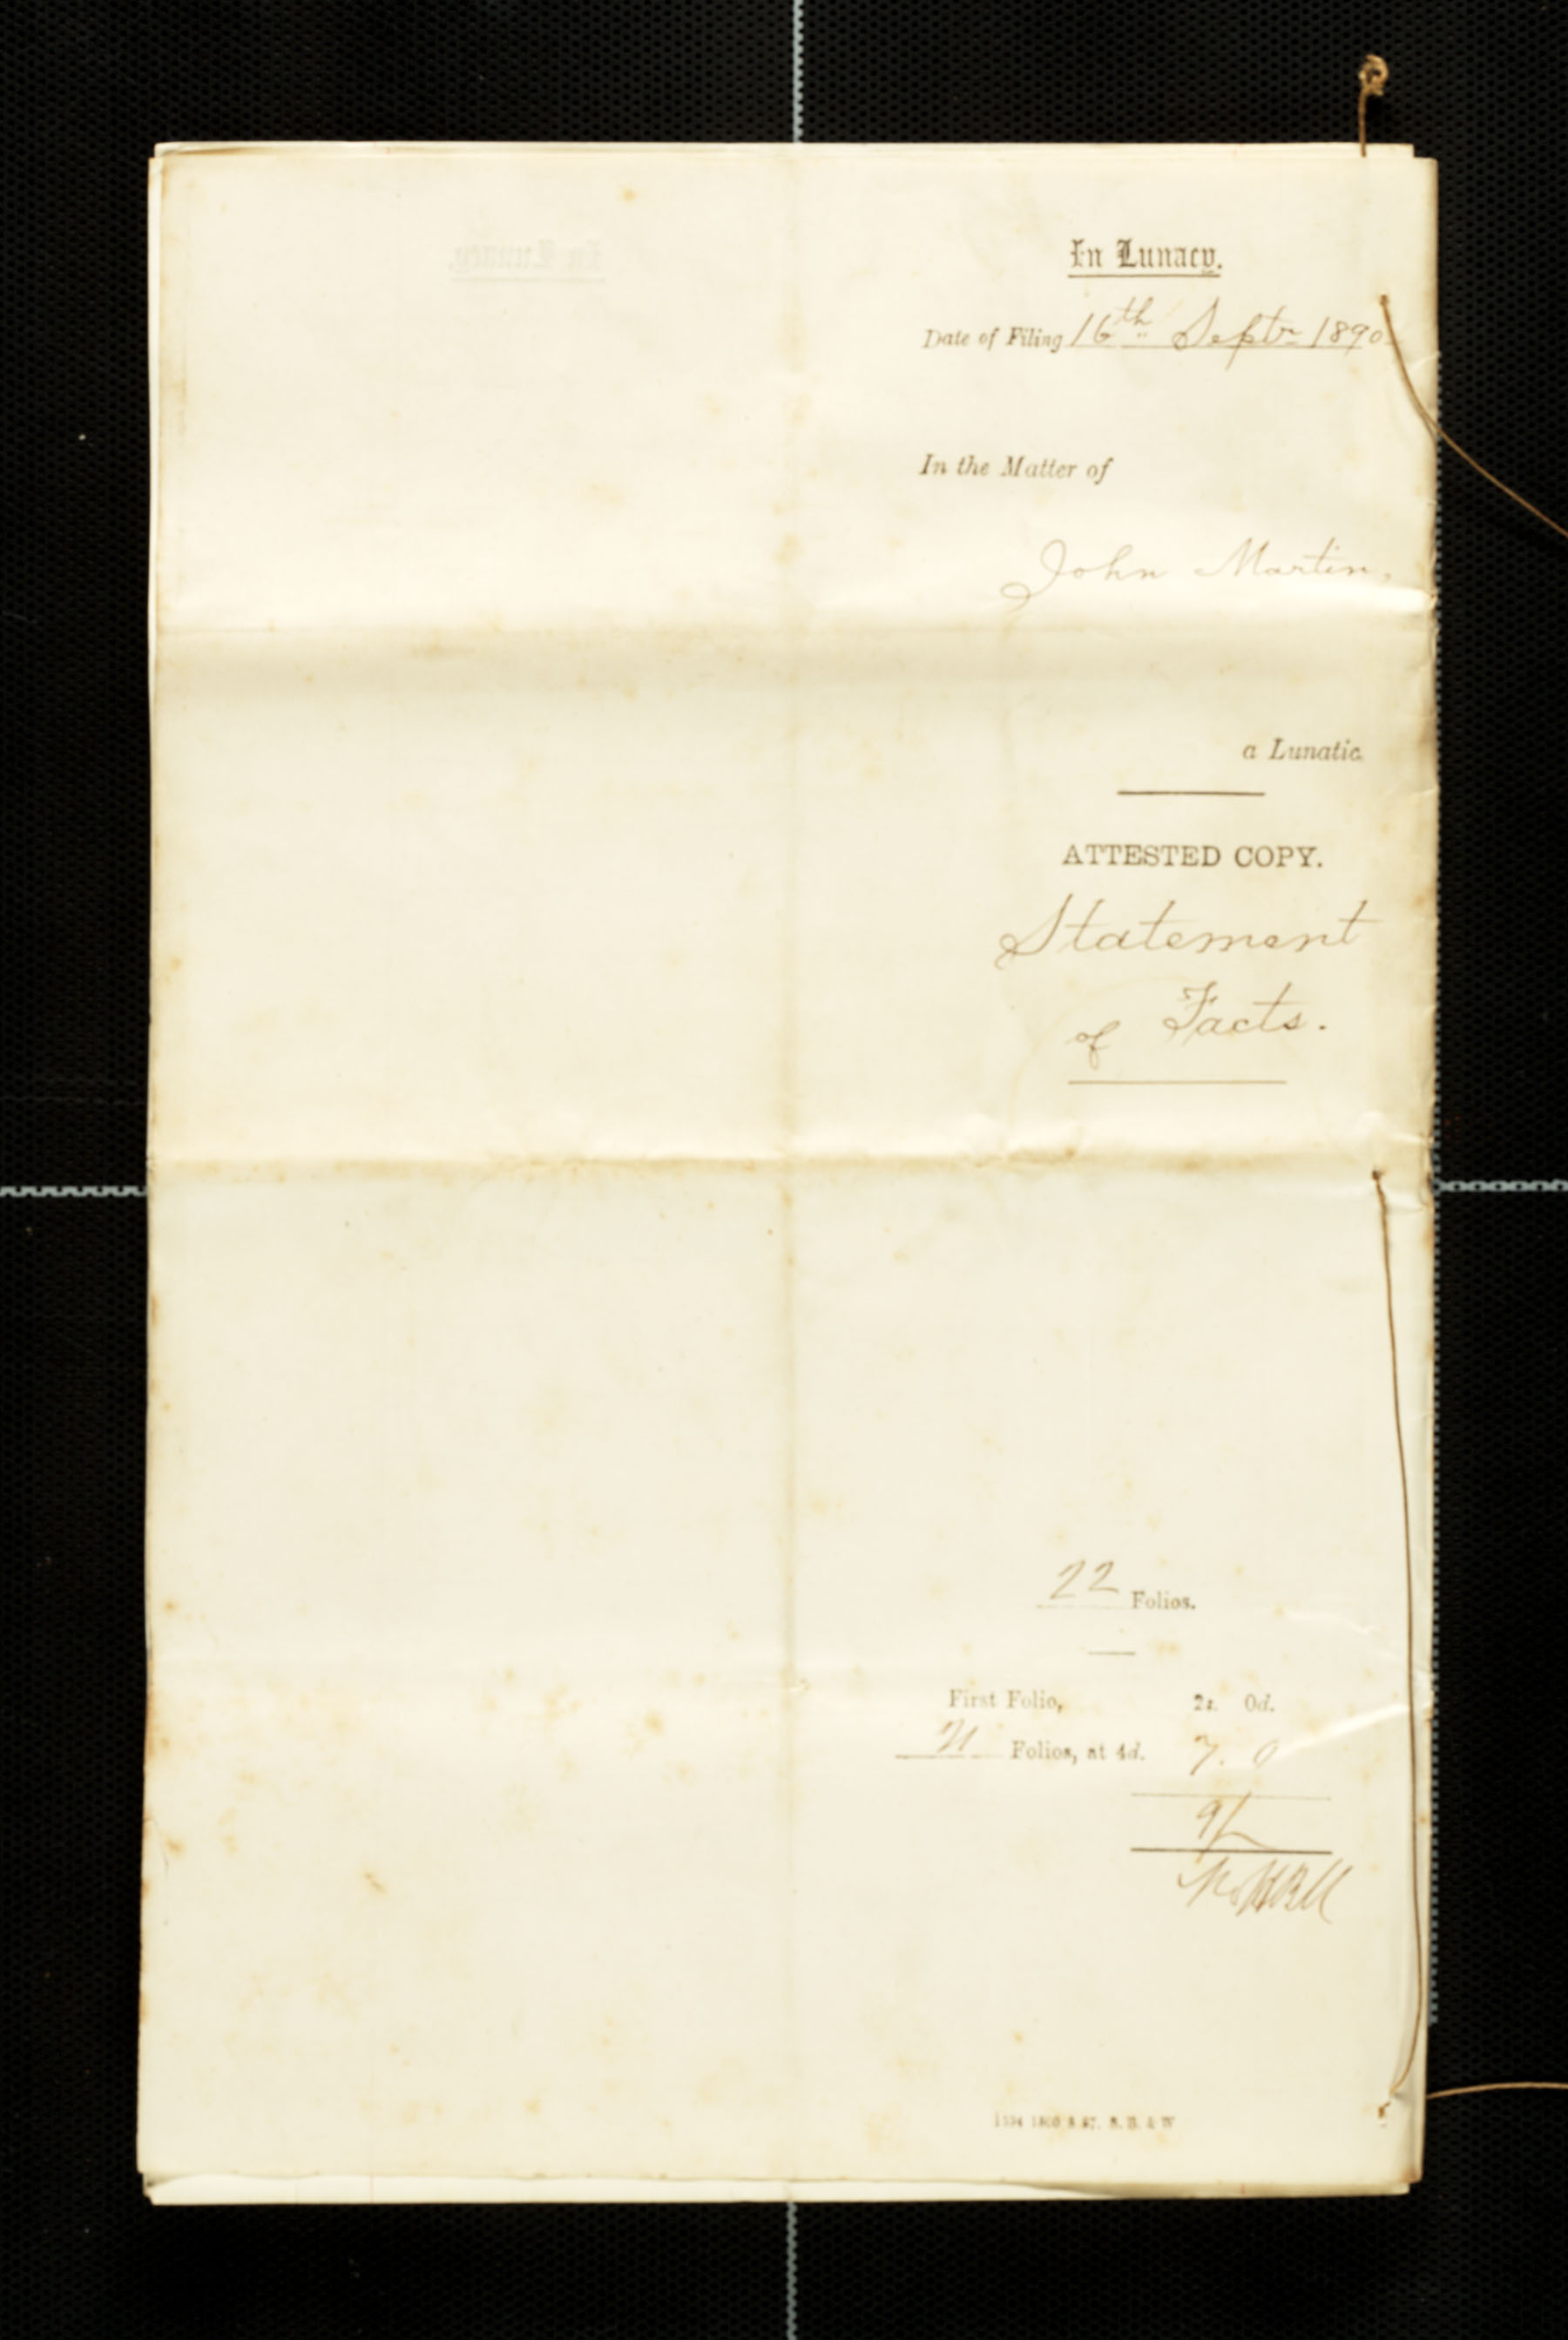 In Lunacy.
Date of Filing 16th Septr 1890.
In the Matter of
John Martin,
a Lunatic.
ATTESTED COPY.
Statement
of Facts.
22 Folios.
First Folio, 2s. 0d.
21 Folios, at 4d. 7. 0
9/-